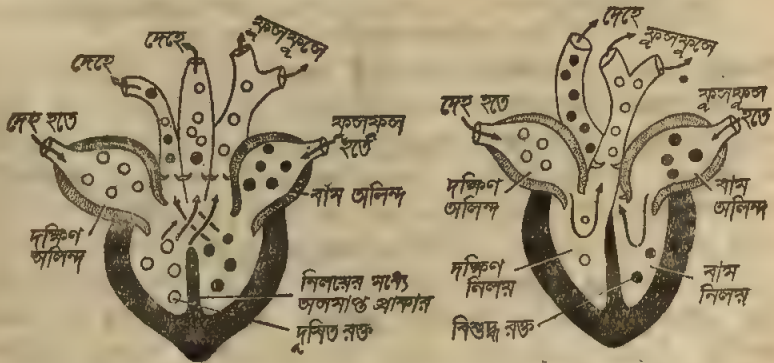 দেহে
দেহে
ফুসফুসে
দেহ হতে
ফুসফুস
হতে
বাম অলিন্দ
দক্ষিণ
অলিন্দ
নিলয়ের মধ্যে
অসমাপ্ত প্রাকার
দূষিত রক্ত
দেহে
ফুসফুসে
দেহ হতে
ফুসফুস
হতে
দক্ষিণ
অলিন্দ
বাম
অলিন্দ
দক্ষিণ
নিলয়
বাম
নিলয়
বিশুদ্ধ রক্ত